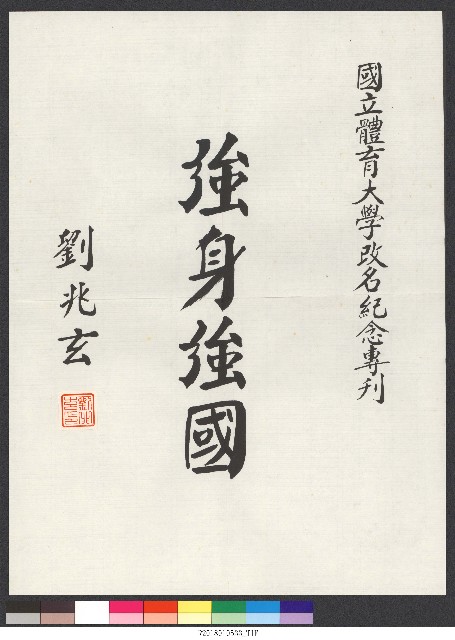 國立體育大學改名紀念專刊
強身強國
劉兆玄